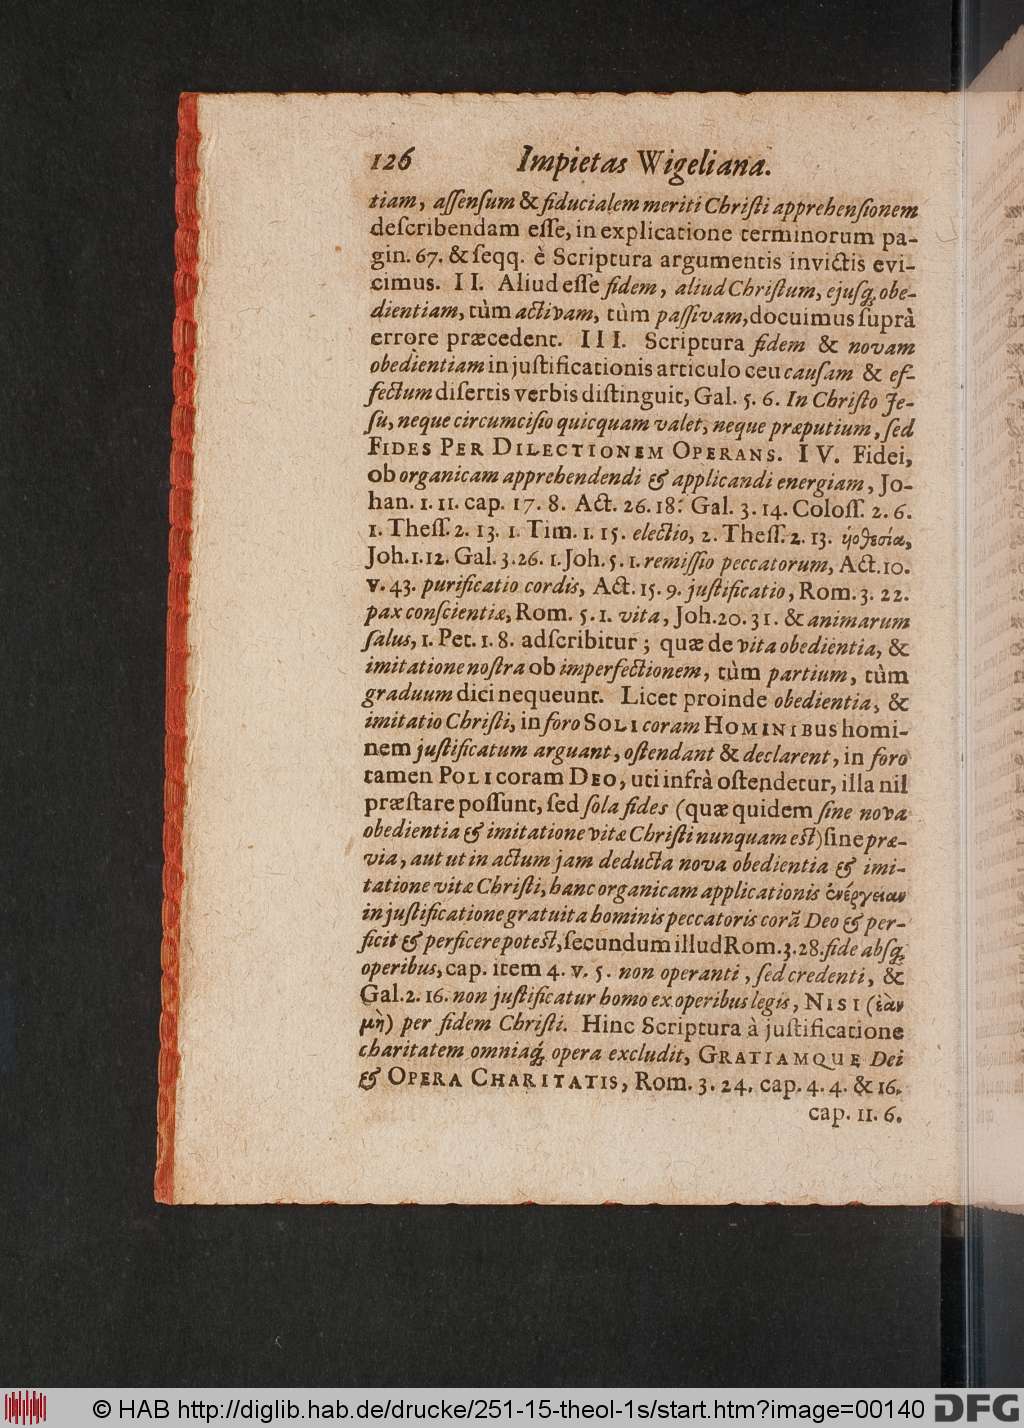 126 Impietas Wigeliana.
tiam, aſſenſum & fiducialem meriti Chriſti apprehenſionem
deſcribendam eſſe, in explicatione terminorum pa-
gin. 67. & ſeqq. è Scriptura argumentis invictis evi-
cimus. II. Aliud eſſe fidem, aliud Chriſtum, ejuſq́; obe-
dientiam, tùm activam, tùm paſſivam, docuimus ſuprà
errore præcedent. III. Scriptura fidem & novam
obedientiam in juſtificationis articulo ceu cauſam & ef-
fectum diſertis verbis diſtinguit, Gal. 5. 6. In Chriſto Je-
ſu, neque circumciſio quicquam valet, neque præputium, ſed
FIDES PER DILECTIONEM OPERANS. IV. Fidei,
ob organicam apprehendendi & applicandi energiam, Jo-
han. 1. 11. cap. 17. 8. Act. 26. 18. Gal. 3. 14. Coloſſ. 2. 6.
1. Theſſ. 2. 13. 1. Tim. 1. 15. electio, 2. Theſſ. 2. 13. ὑοθεσία,
Joh. 1. 12. Gal. 3. 26. 1. Joh. 5. 1. remiſſio peccatorum, Act. 10.
v. 43. purificatio cordis, Act. 15. 9. juſtificatio, Rom. 3. 22.
pax conſcientiæ, Rom. 5. 1. vita, Joh. 20. 31. & animarum
ſalus, 1. Pet. 1. 8. adſcribitur; quæ de vita obedientia, &
imitatione noſtra ob imperfectionem, tùm partium, tùm
graduum dici nequeunt. Licet proinde obedientia, &
imitatio Chriſti, in foro SOLI coram HOMINIBUS homi-
nem juſtificatum arguant, oſtendant & declarent, in foro
tamen POLI coram DEO, uti infrà oſtendetur, illa nil
præſtare poſſunt, ſed ſola fides (quæ quidem ſine nova
obedientia & imitatione vitæ Chriſti nunquam eſt) ſine præ-
via, aut ut in actum jam deducta nova obedientia & imi-
tatione vitæ Chriſti, hanc organicam applicationis ἐνέργειαν
in juſtificatione gratuita hominis peccatoris corã Deo & per-
ficit & perficere poteſt, ſecundum illud Rom. 3. 28. fide abſq;
operibus, cap. item 4. v. 5. non operanti, ſed credenti, &
Gal. 2. 16. non juſtificatur homo ex operibus legis, NISI (ἐὰν
μὴ) per fidem Chriſti. Hinc Scriptura à juſtificatione
charitatem omniaq́; opera excludit, GRATIAMQUE Dei
& OPERA CHARITATIS, Rom. 3. 24. cap. 4. 4. & 16.
cap. 11. 6.
© HAB http://diglib.hab.de/drucke/251-15-theol-1s/start.htm?image=00140
DFG